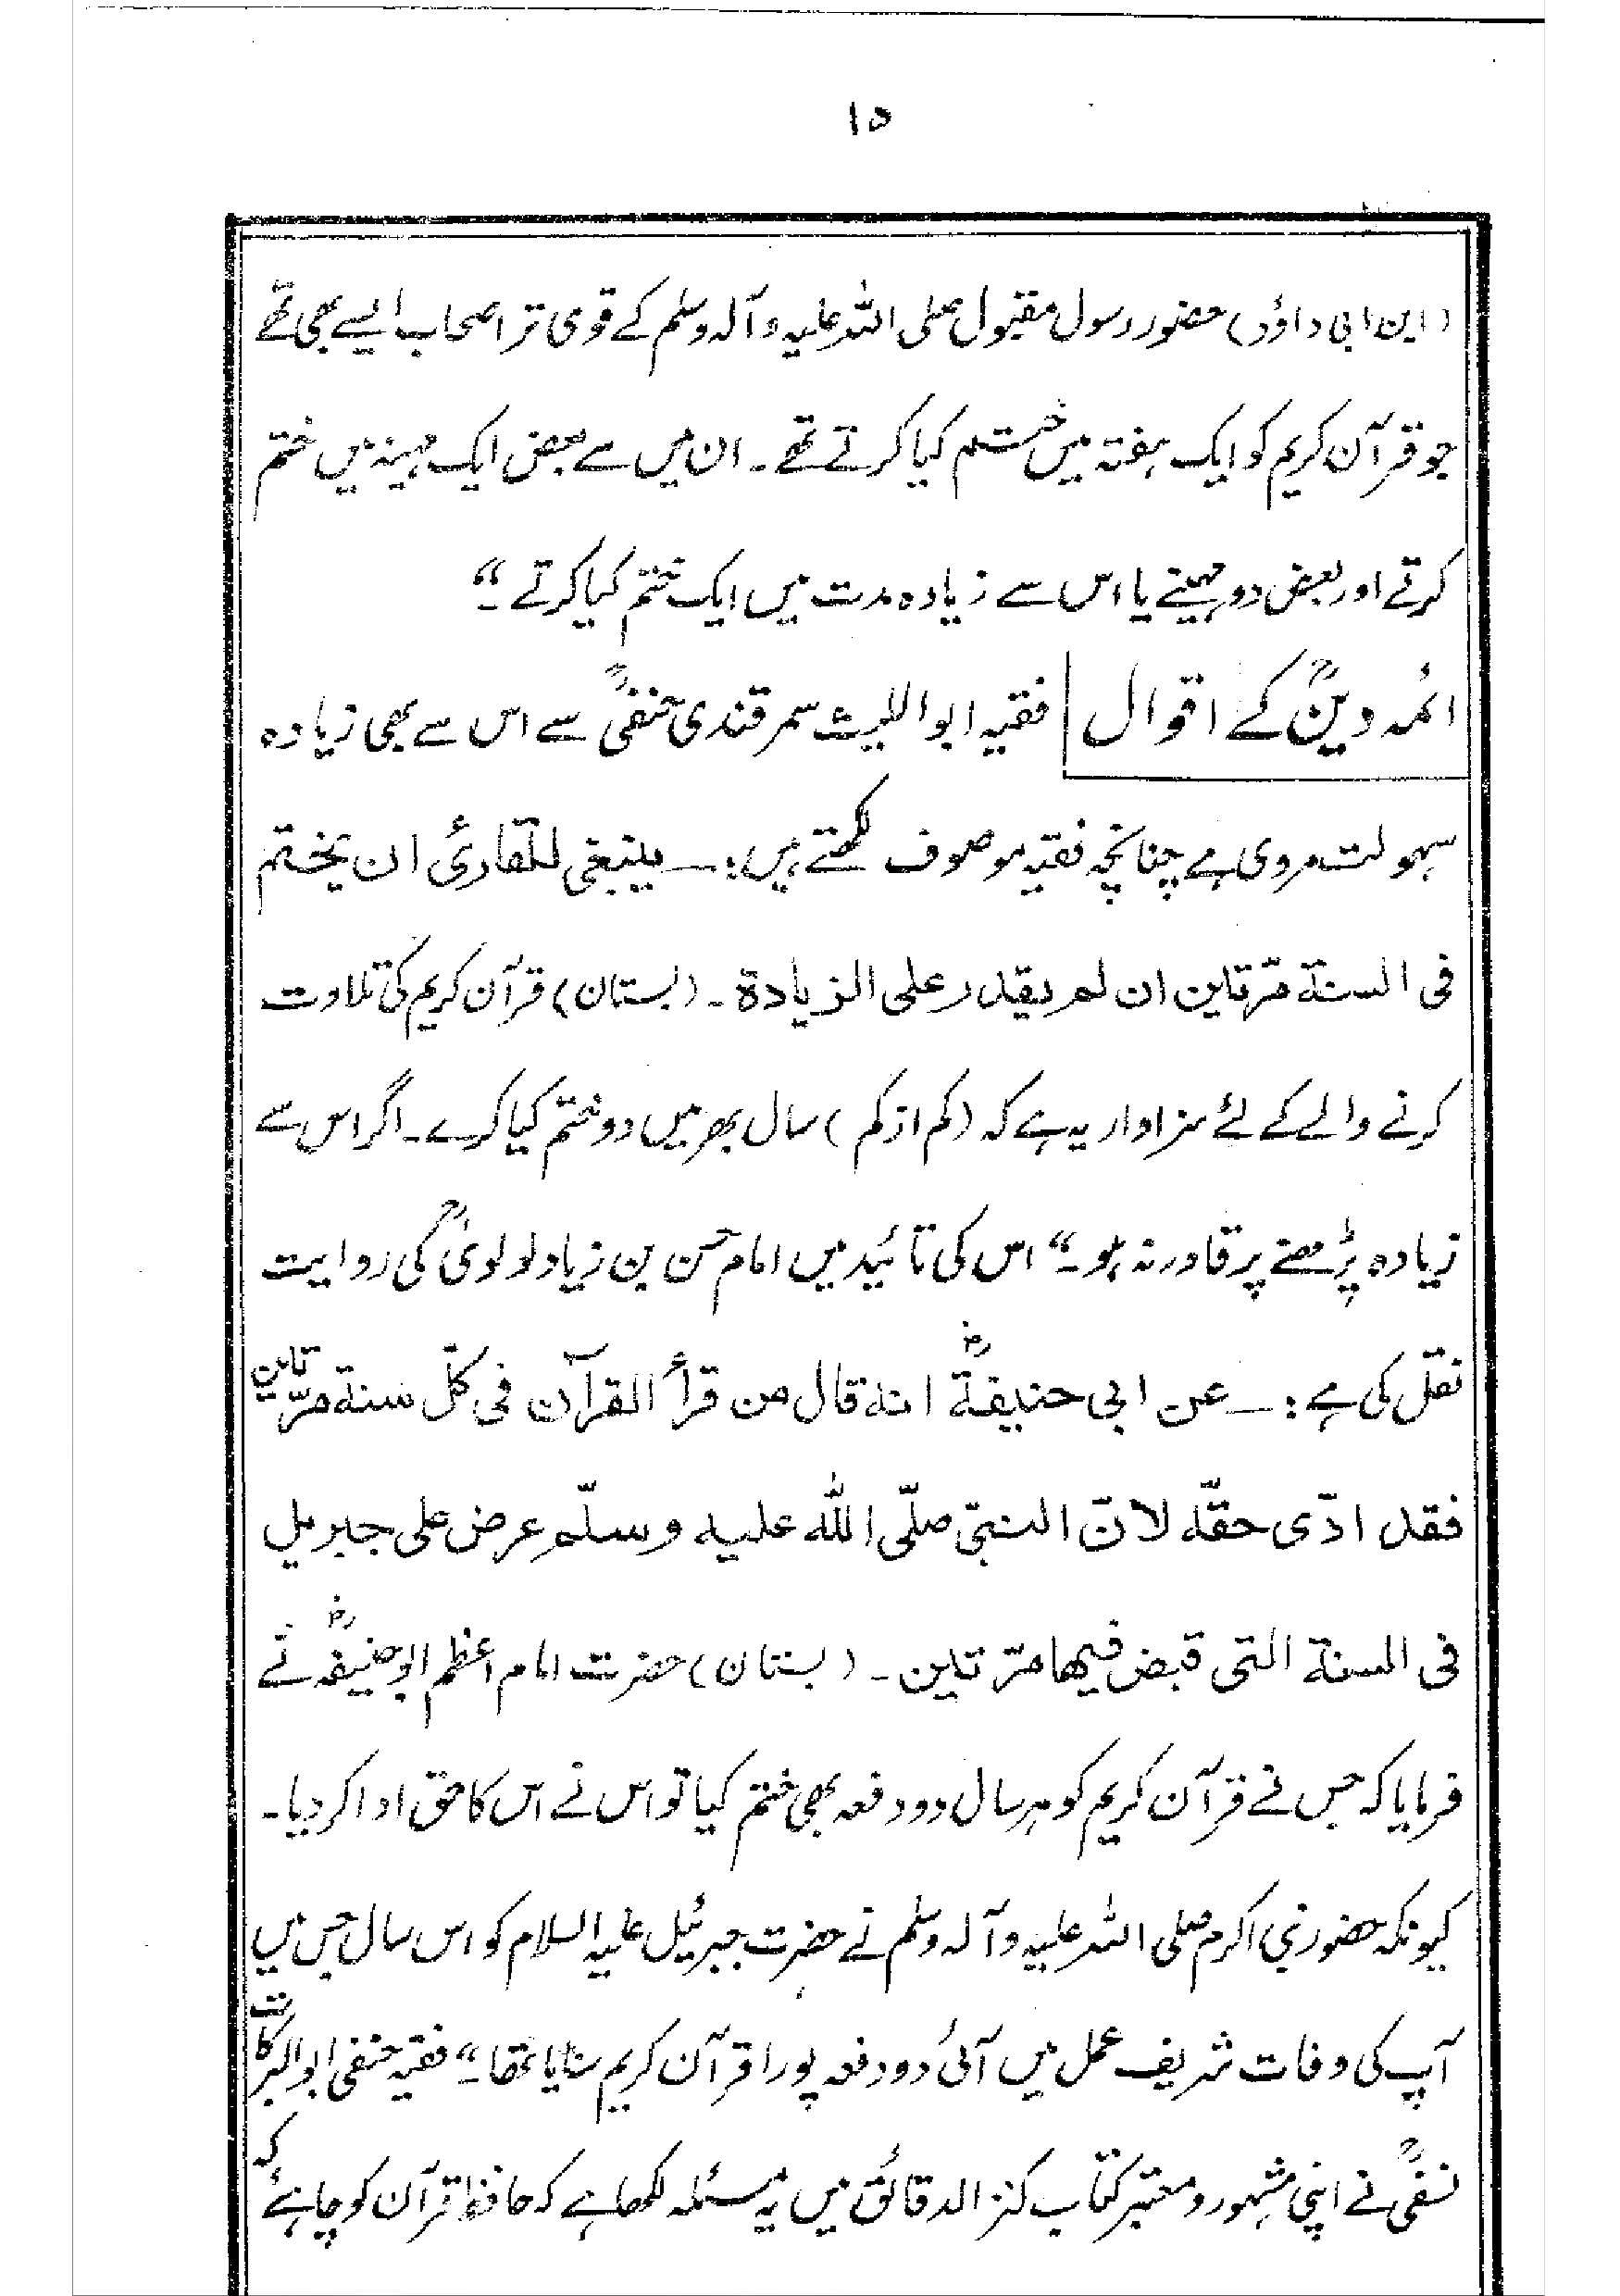 ۱۵
(ابن ابی داؤد) حضور رسول مقبول صلی اللہ علیہ وآلہ وسلم کے قوی تر اصحاب ایسے بھی تھے
جو قرآن کریم کو ایک ہفتہ میں ختم کیا کرتے تھے۔ ان میں سے بعض ایک مہینہ میں ختم
کرتے اور بعض دو مہینے یا اس سے زیادہ مدت میں ایک ختم کیا کرتے۔“
ائمہ دینؒ کے اقوال | فقیہ ابو اللیث سمرقندی حنفیؒ سے اس سے بھی زیادہ
سہولت مروی ہے چنانچہ فقیہ موصوف لکھتے ہیں:۔ ینبغی للقاریٔ ان یختم
فی السنۃ مرّتین ان لم یقدر علی الزیادۃ۔ (بستان) قرآن کریم کی تلاوت
کرنے والے کے لئے سزاوار یہ ہے کہ (کم از کم) سال بھر میں دو ختم کیا کرے۔ اگر اس سے
زیادہ پڑھنے پر قادر نہ ہو۔“ اس کی تائید میں امام حسن بن زیاد لولویؒ کی روایت
نقل کی ہے:۔ عن ابی حنیفۃؓ انہ قال من قرأ القرآن فی کلّ سنۃ مرّتین
فقد ادّی حقّہ لانّ النبیّ صلّی اللہ علیہ وسلّم عرض علی جبریل
فی السنۃ التی قبض فیھا مرّتین۔ (بستان) حضرت امام اعظم ابوحنیفہؓ نے
فرمایا کہ جس نے قرآن کریم کو ہر سال دو دفعہ بھی ختم کیا تو اس نے اس کا حق ادا کر دیا۔
کیونکہ حضور نبی اکرم صلی اللہ علیہ وآلہ وسلم نے حضرت جبرئیل علیہ السلام کو اس سال جس میں
آپ کی وفات شریف عمل میں آئی دو دفعہ پورا قرآن کریم سنایا تھا۔“ فقیہ حنفی ابوالبرکات
نسفیؒ نے اپنی مشہور و معتبر کتاب کنز الدقائق میں یہ مسئلہ لکھا ہے کہ حافظ قرآن کو چاہئے کہ